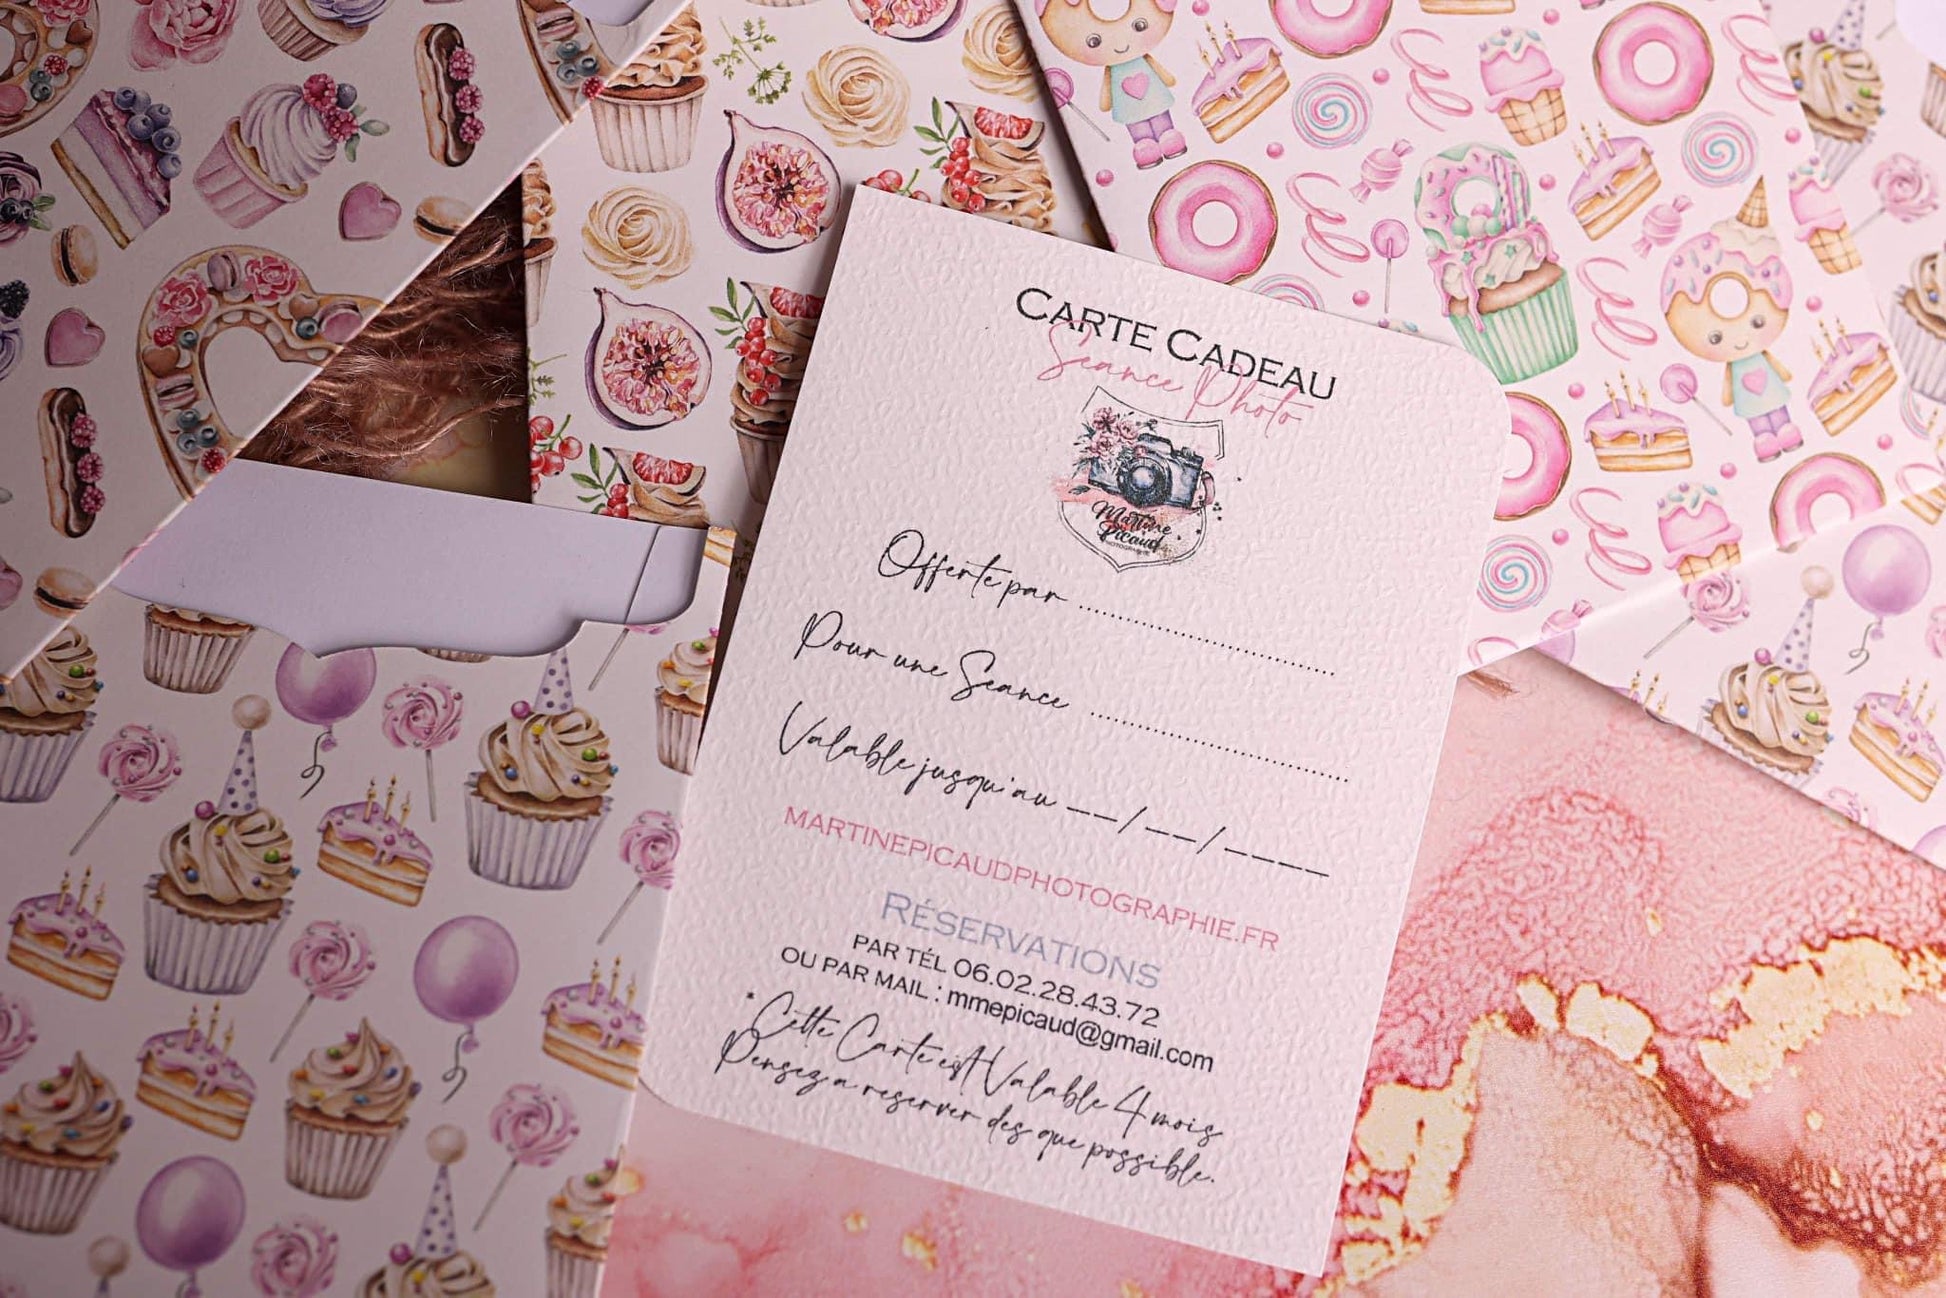 CARTE CADEAU
Seance Photo
Martine
Picaud
PHOTOGRAPHE
Offerte par ..............................
Pour une Seance ..............................
Valable jusqu'au __/__/____
MARTINEPICAUDPHOTOGRAPHIE.FR
RÉSERVATIONS
PAR TÉL 06.02.28.43.72
OU PAR MAIL : mmepicaud@gmail.com
*Cette Carte est Valable 4 mois
Pensez a reserver des que possible.